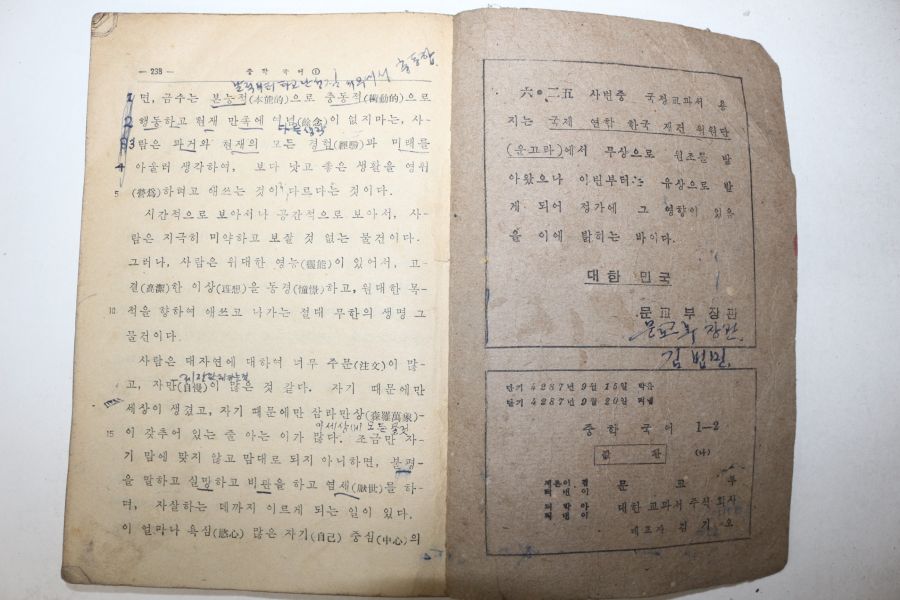 — 238 —
중 학 국 어 ①
면, 금수는 본능적(本能的)으로 충동적(衝動的)으로
행동하고 현재 만족에 여념(餘念)이 없지마는, 사-
다른생각
람은 과거와 현재의 모든 경험(經驗)과 미래를
아울러 생각하여, 보다 낫고 좋은 생활을 영위
5 (營爲)하려고 애쓰는 것이 다르다는 것이다.
시간적으로 보아서나 공간적으로 보아서, 사-
람은 지극히 미약하고 보잘 것 없는 물건이다.
그러나, 사람은 위대한 영능(靈能)이 있어서, 고-
결(高潔)한 이상(理想)을 동경(憧憬)하고, 원대한 목-
10 적을 향하여 애쓰고 나가는 절대 무한의 생명 그
물건이다.
사람은 대자연에 대하여 너무 주문(注文)이 많-
고, 자만(自慢)이 많은 것 같다. 자기 때문에만
세상이 생겼고, 자기 때문에만 삼라만상(森羅萬象)-
이세상에 모든물것
15 이 갖추어 있는 줄 아는 이가 많다. 조금만 자-
기 맘에 맞지 않고 맘대로 되지 아니하면, 불평-
을 말하고 실망하고 비관을 하고 염세(厭世)를 하-
며, 자살하는 데까지 이르게 되는 일이 있다.
이 얼마나 욕심(慾心) 많은 자기(自己) 중심(中心)의
六•二五 사변중 국정교과서 용
지는 국제 연합 한국 재건 위원단
(운끄라)에서 무상으로 원조를 받
아왔으나 이번부터는 유상으로 받
게 되어 정가에 그 영향이 있음
을 이에 밝히는 바이다.
대한 민국
문교부장관
문교부 장관
김 법민
단기 4287년 9월 15일 박음
단기 4287년 9월 20일 펴냄
중학국어 1—2
(나)
지은이 겸
펴낸이 문교부
펴박아
펴낸이 대한 교과서 주식 회사
대표자 김기오